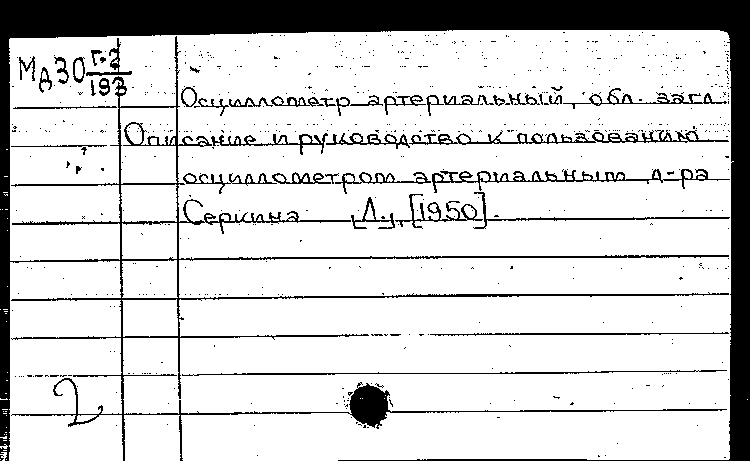 МдЗО Г-2
193
Осциллометр артериальный, обл. загл.
Описание и руководство к пользованию
осциллометром артериальным д-ра
Серкина [Л.], [1950].
2